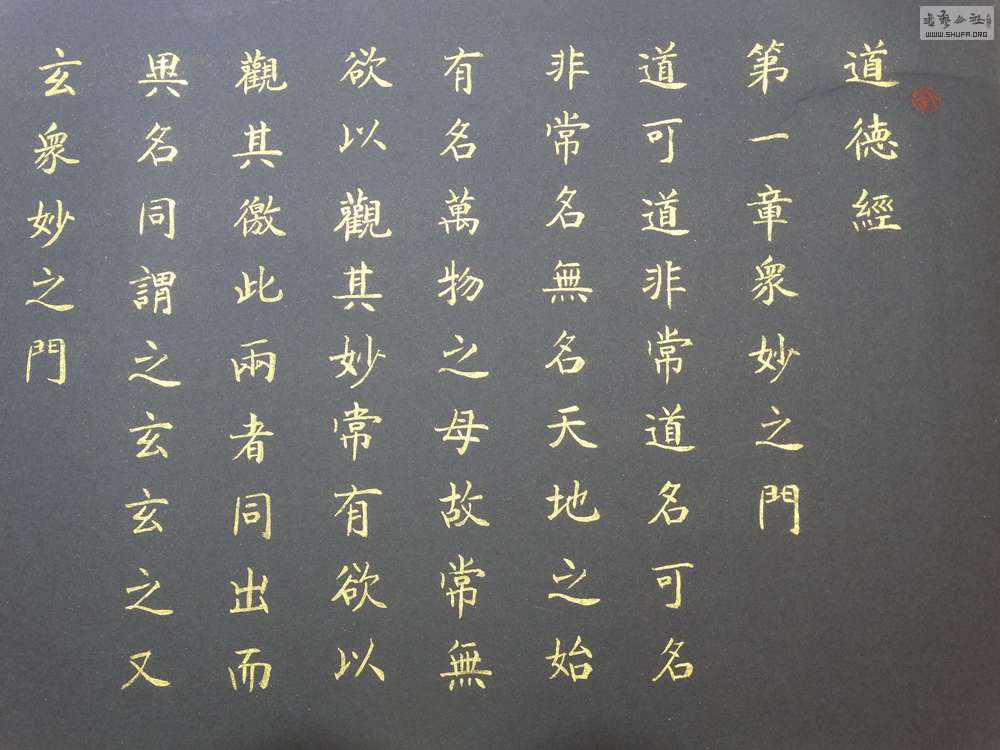 道德經
第一章衆妙之門
道可道非常道名可名
非常名無名天地之始
有名萬物之母故常無
欲以觀其妙常有欲以
觀其徼此兩者同出而
異名同謂之玄玄之又
玄衆妙之門
WWW.SHUFA.ORG